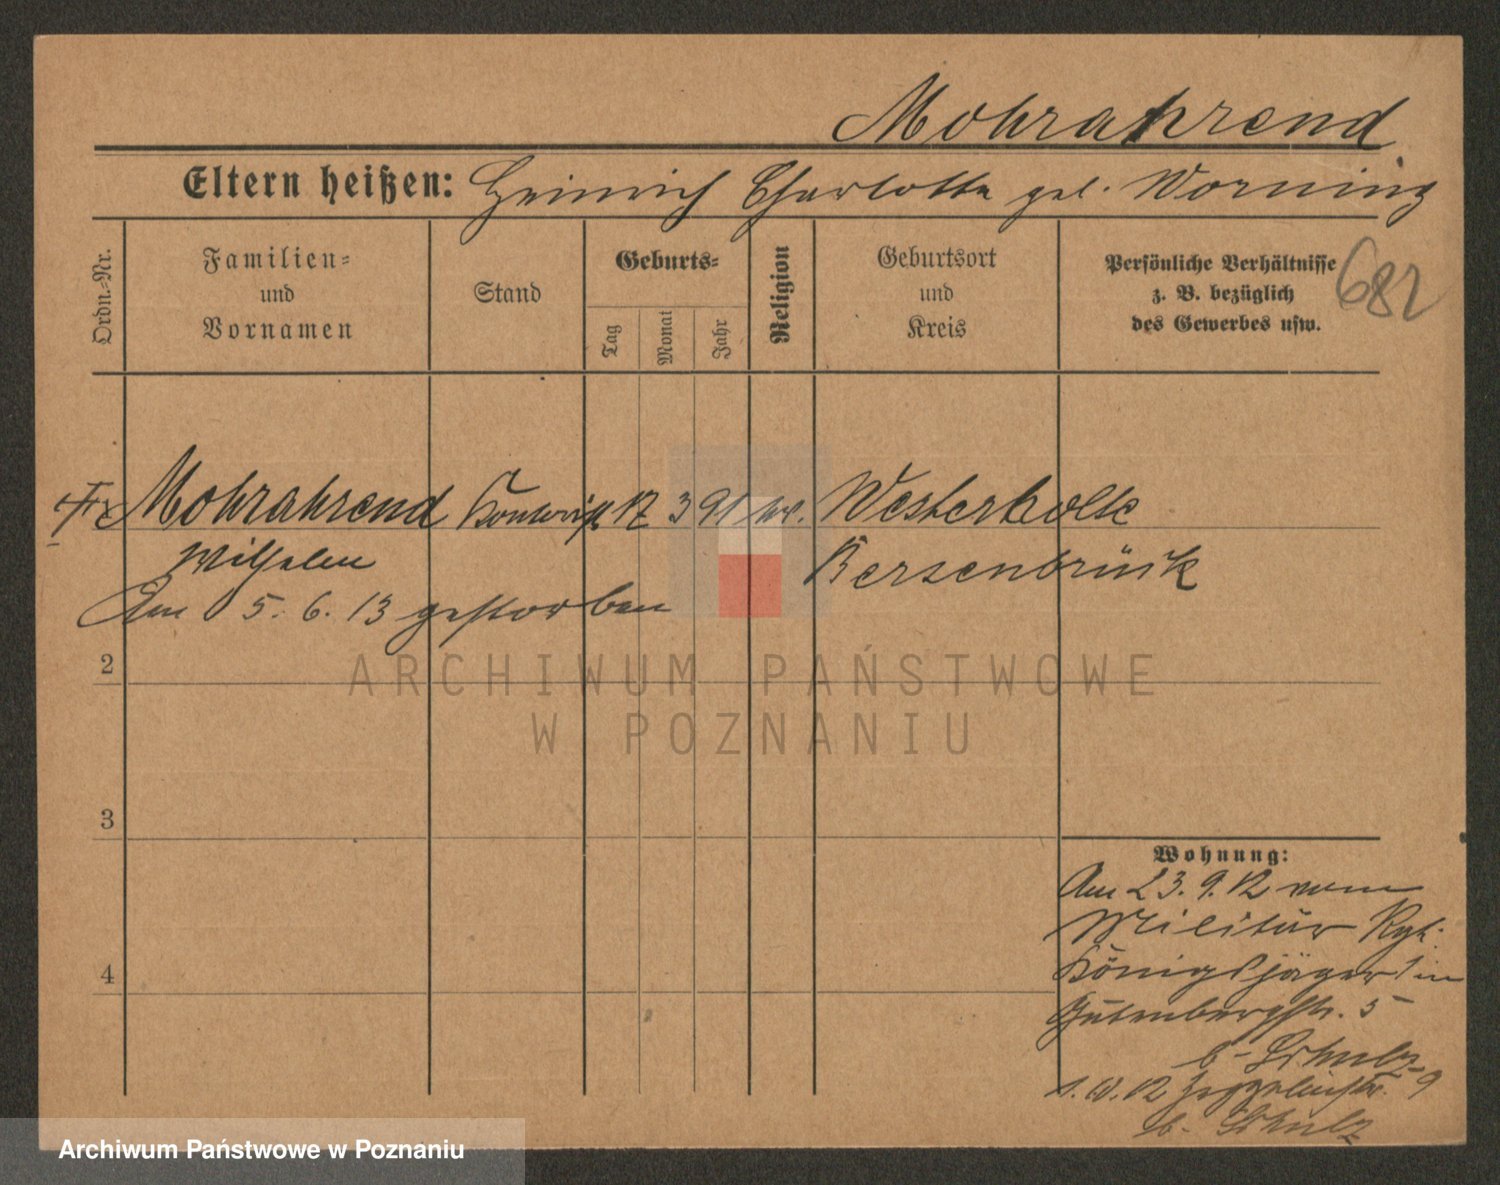 Mohrahrend
Eltern heißen: Heinrich Charlotte geb. Worning
Ordn.-Nr.
Familien-
und
Vornamen
Stand
Geburts-
Tag
Monat
Jahr
Religion
Geburtsort
und
Kreis
Persönliche Verhältnisse
z. B. bezüglich
des Gewerbes usw.
682
Mohrahrend 12 3 91 Westerholte
Wilhelm Bersenbrück
Am 5. 6. 13 gestorben
2
ARCHIWUM PAŃSTWOWE
W POZNANIU
3
4
Wohnung:
Am 23. 9. 12 vom
Militär Rgt.
Königsjäger 1 in
Gutenbergstr. 5
b- Schulz
1. 10. 12 9
b- Schulz
Archiwum Państwowe w Poznaniu